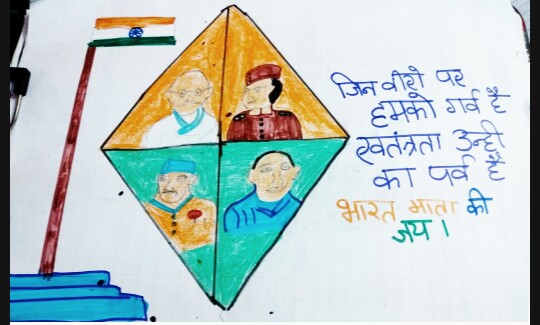 जिन वीरो पर
हमको गर्व है
स्वतंत्रता उन्ही
का पर्व है
भारत माता की
जय।